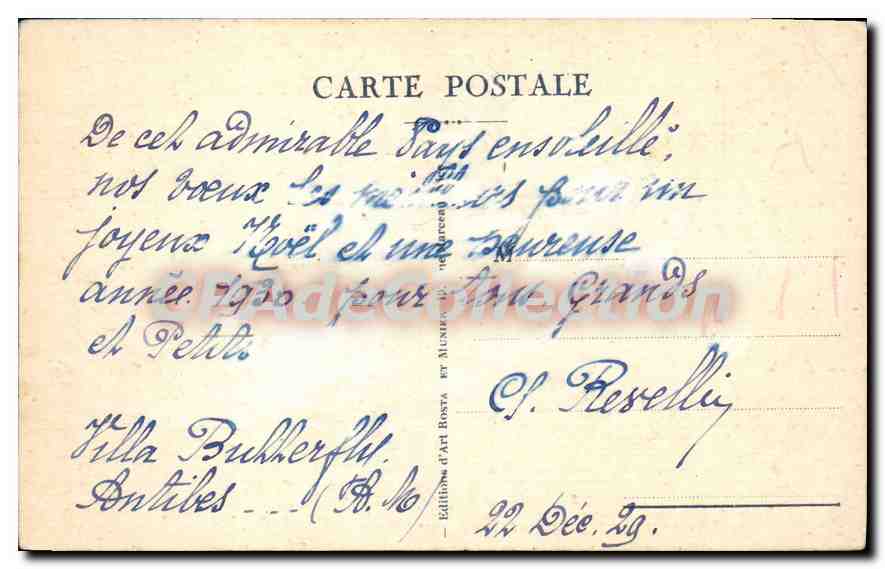 CARTE POSTALE
De cet admirable Pays ensoleillé,
nos vœux les meilleurs pour un
joyeux Noël et une heureuse
année 1930 pour tous Grands
et Petits
M
Ch. Revelly
Villa Butterfly.
Antibes --- (A. M)
22 Déc. 29.
Editions d'Art ROSTA ET MUNIER
©PAdeCollection